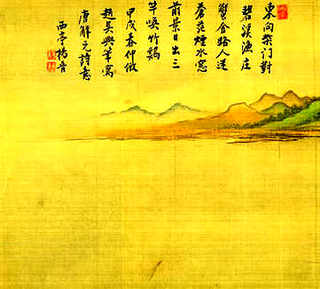 東向柴門對
碧溪漁庄
蟹舍路人迷
蒼茫煙水窓
前景日出三
竿喚竹鷄
甲戌春仲倣
趙吳興筆寫
唐解元詩意
西亭楊晉